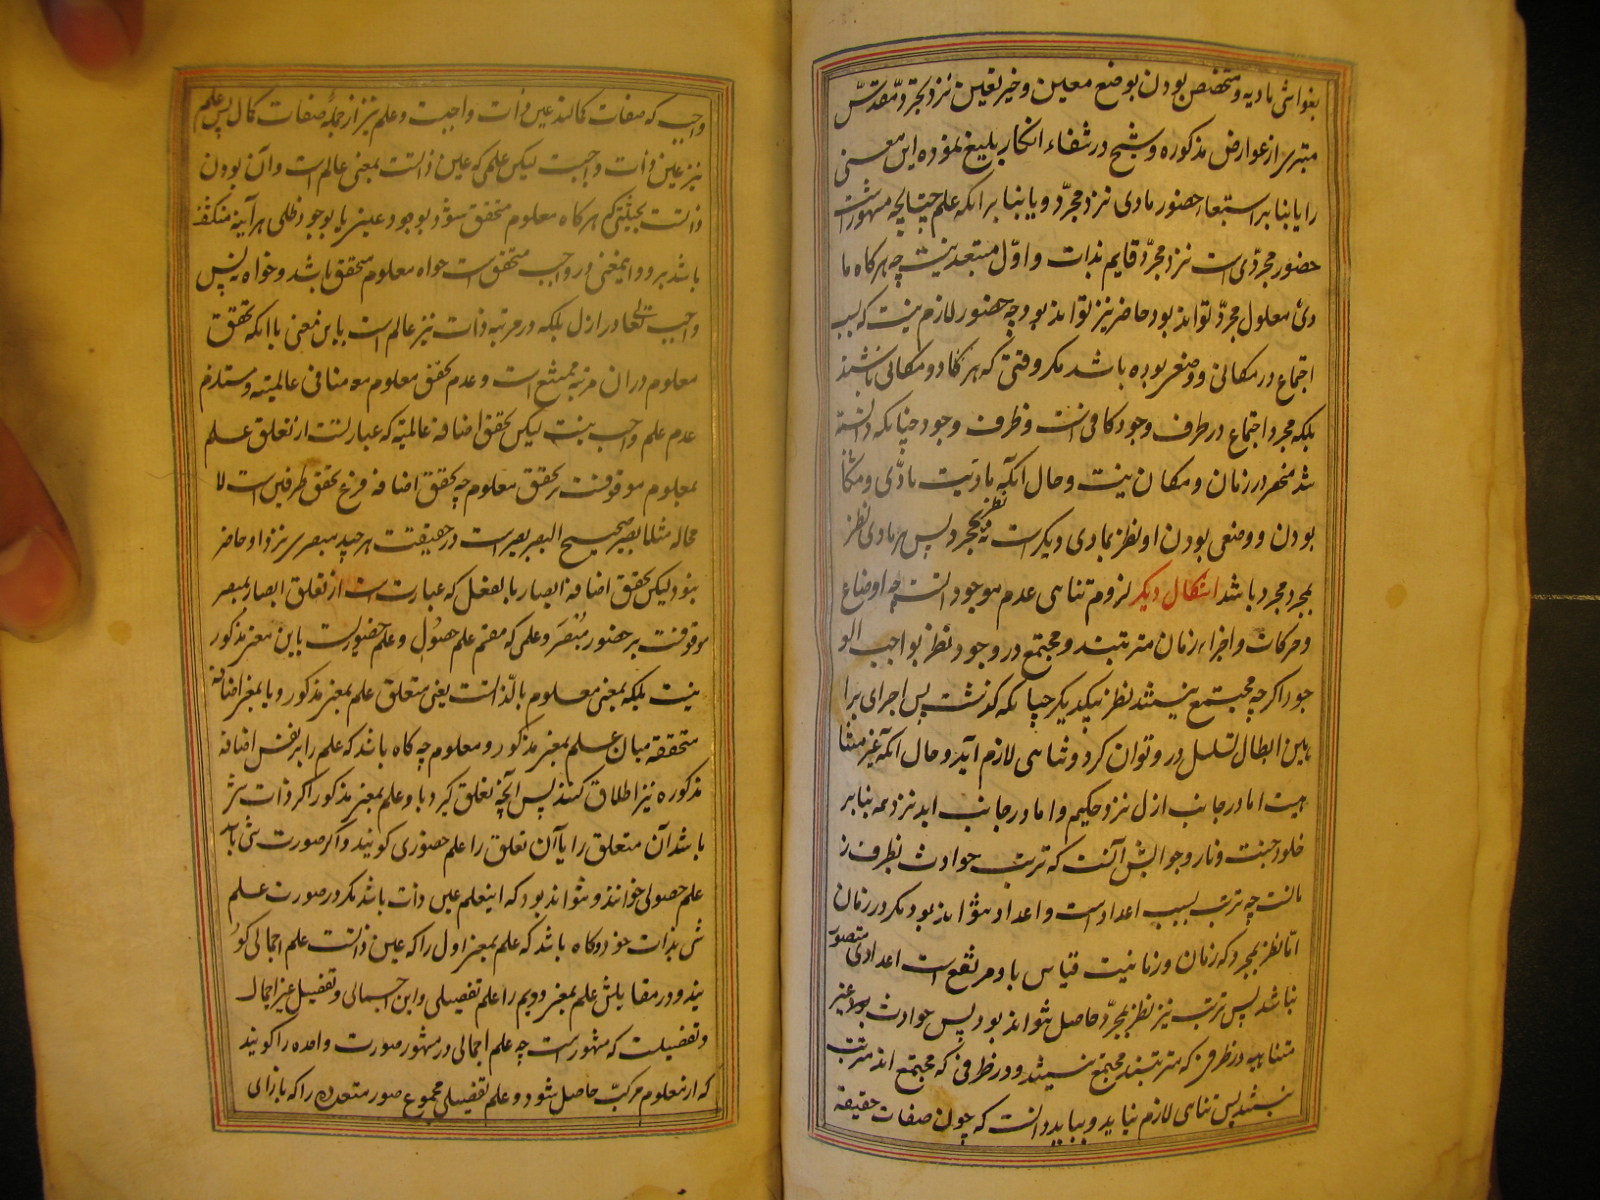 بغواشی مادیه و متخصص بودن بوضع معین و خیر تعین نزد مجرد مقدس
مبتری از عوارض مذکوره و شیخ در شفاء انکار بلیغ نموده این معنی
را یا بنا بر استبعاد حضور مادی نزد مجرد و یا بنا بر انکه علم چنانچه مشهور است
حضور مجردی است نزد مجرد قایم بذات و اول مستبعد نیست چه هرگاه ما
دی معلول مجرد تواند بود حاضر نیز تواند بود چه حضور لازم نیست که بسبب
اجتماع در مکانی و وضعی بوده باشد مکر وقتی که هر کدام دو مکانی باشند
بلکه مجرد اجتماع در ظرف وجود کافی است و ظرف وجود چنانکه دانسته
شد منحصر در زمان و مکان نیست و حال انکه مادیت مادی و مکانی
بودن و وضعی بودن او نظر بمادی دیکر است نه نظر بمجرد پس هر مادی نظر
بمجرد مجرد باشد اشکال دیکر لزوم تناهی عدم موجود است چه اوضاع
و حرکات و اجزاء زمان مترتبند و مجتمع در وجود نظر بواجب الو
جود اکرچه مجتمع نیستند نظر بیکدیکر چنانکه کذشت پس اجرای برا
هین ابطال تسلسل در و توان کرد و تناهی لازم آید و حال انکه غیر متنا
هیست اما در جانب ازل نزد حکیم و اما در جانب ابد نزد همه بنا بر
خلود جنت و نار و جوابش آنست که ترتب حوادث بظرف ز
مانست چه ترتب بسبب اعداد است و اعداد نتواند بود مکر در زمان
اما نظر بمجرد که زمان و زمانیت قیاس باو مرتفع است اعدادی متصور
نباشد پس ترتب نیز نظر بمجرد حاصل نتواند بود پس حوادث غیر
متناهیه در ظرفی که مترتبند مجتمع نیستند و در ظرفی که مجتمع اند مترتب
نیستند پس تناهی لازم نیاید و بباید دانست که چون صفات حقیقه
واجب که صفات کمالند عین ذات واجبست و علم نیز از جمله صفات کمال پس علم
نیز عین ذات واجبست لیکن علمی که عین ذاتست بمعنی عالم است و آن بودن
ذاتست بحیثیتی که هرگاه معلوم متحقق شود بوجود عینی یا بوجود ظلی هر آینه منکشف
باشد برو و اینمعنی در واجب متحقق است خواه معلوم متحقق باشد و خواه نه پس
واجب تعالی در ازل بلکه در مرتبه ذات نیز عالم است باین معنی با انکه تحقق
معلوم در ان مرتبه ممتنع است و عدم تحقق معلوم منافی عالمیت و مستلزم
عدم علم واجب نیست لیکن تحقق اضافه عالمیه که عبارتست از تعلق علم
بمعلوم موقوفست بر تحقق معلوم چه تحقق اضافه فرع تحقق طرفین است لا
محاله مثلا بصیر صحیح البصر بصیر است در حقیقت هر چند مبصری نزد او حاضر
نبود لیکن تحقق اضافه ابصار بالفعل که عبارت است از تعلق ابصار بمبصر
موقوفست بر حضور مبصر و علمی که مقسم علم حصولی و علم حضوریست باین معنی مذکور
نیست بلکه بمعنی معلوم بالذاتست یعنی متعلق علم بمعنی مذکور و یا بمعنی اضافه
متحققه میان علم بمعنی مذکور و معلوم چه گاه باشد که علم را بر نفس اضافه
مذکوره نیز اطلاق کنند پس آنچه تعلق کیرد باو علم بمعنی مذکور اکر ذات شی
باشد آن متعلق را یا آن تعلق را علم حضوری کویند و اکر صورت شی باشد
علم حصولی خوانند و نتواند بود که اینعلم عین ذات باشد مکر در صورت علم
شی بذات خود و گاه باشد که علم بمعنی اول را که عین ذاتست علم اجمالی کو
یند و در مقابلش علم بمعنی دویم را علم تفصیلی و این اجمالی و تفصیل غیر اجمال
و تفصیلست که مشهور است چه علم اجمالی در مشهور صورت واحده را کویند
که از معلوم مرکب حاصل شود و علم تفصیلی مجموع صور متعدده را که بازای